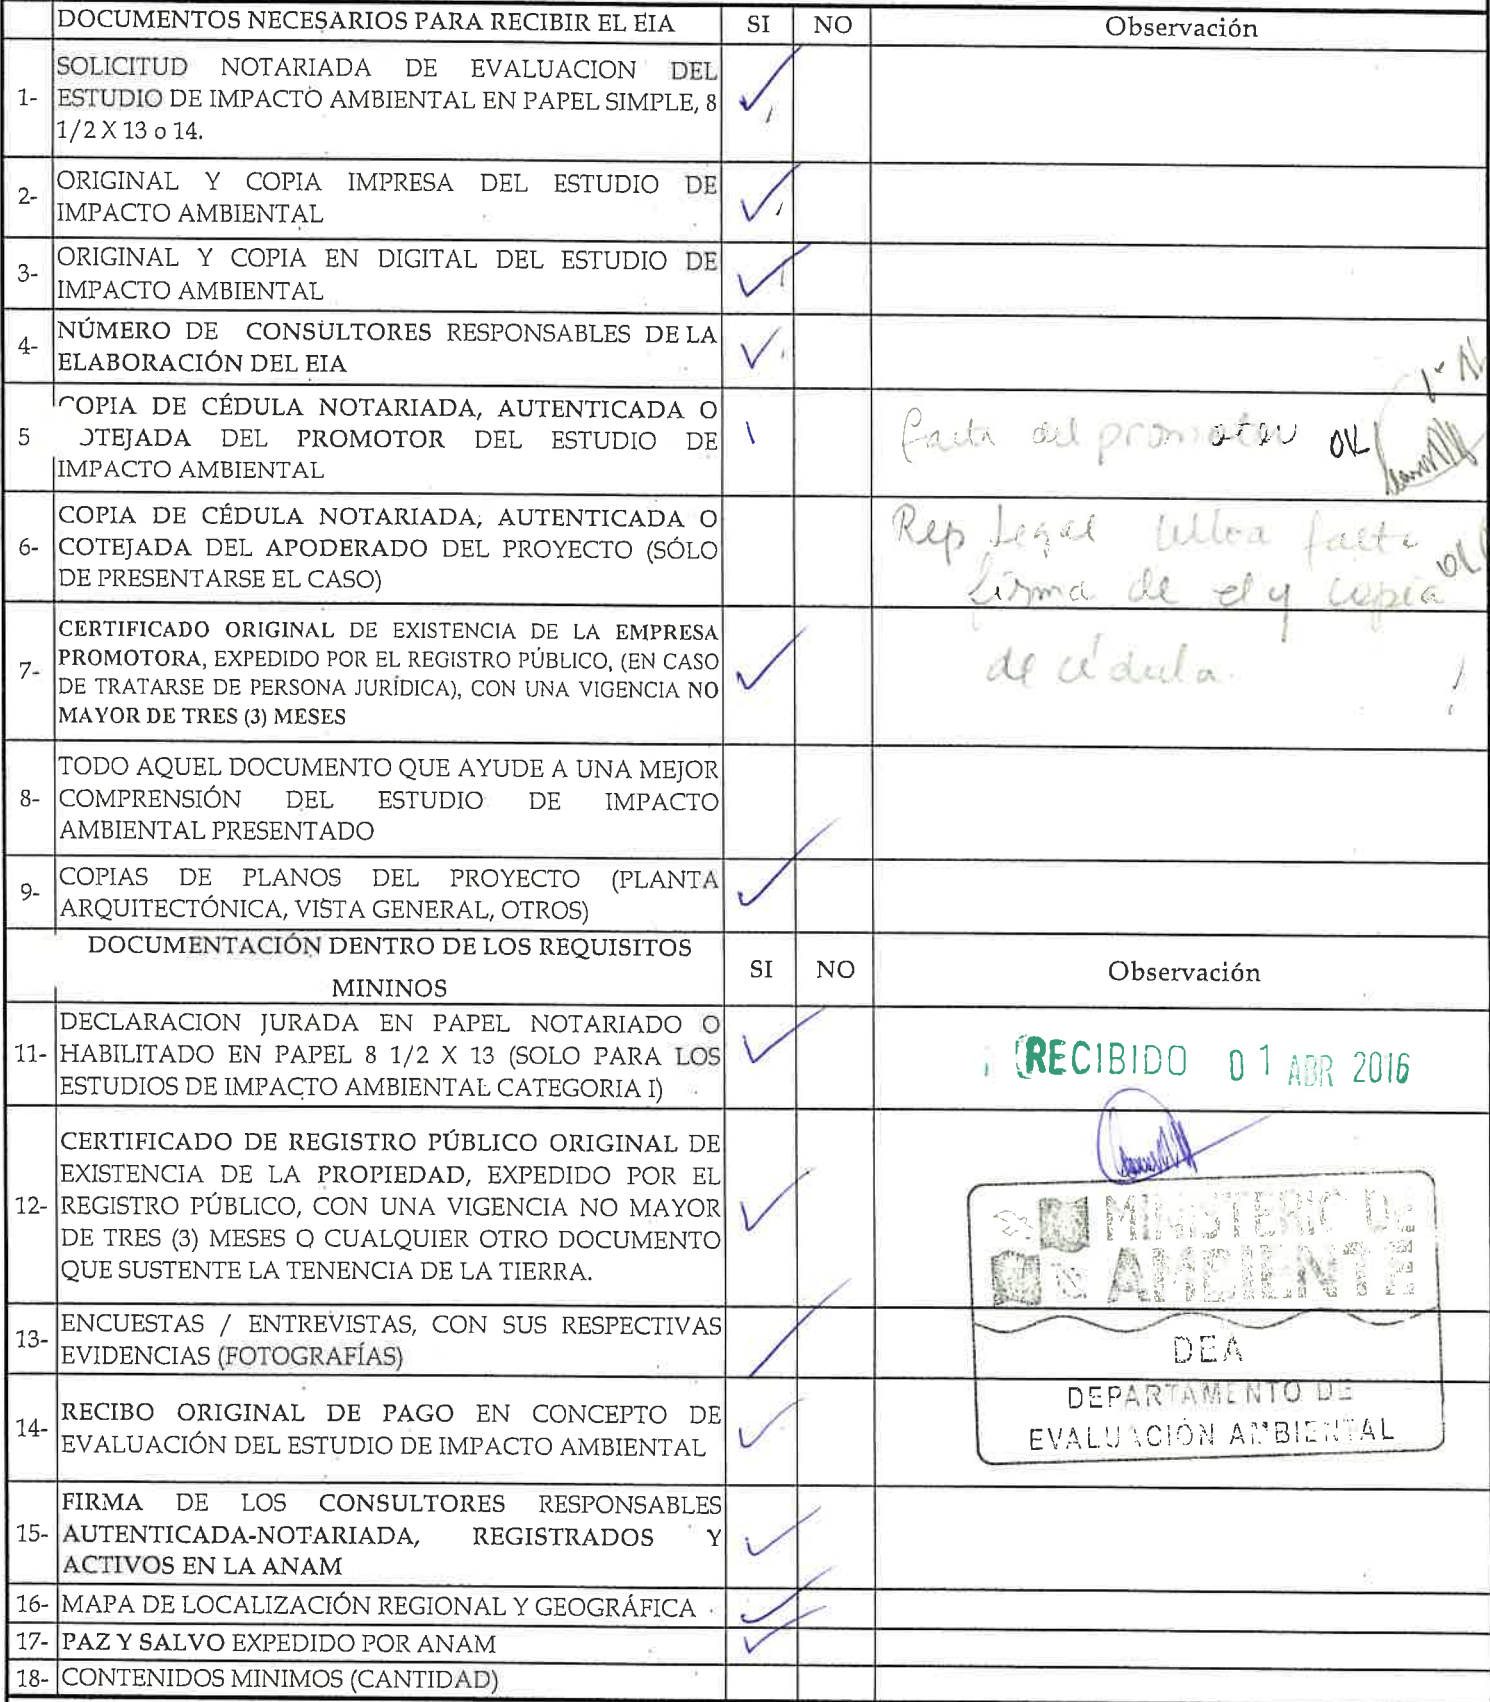 DOCUMENTOS NECESARIOS PARA RECIBIR EL EIA SI NO Observación
1- SOLICITUD NOTARIADA DE EVALUACION DEL
ESTUDIO DE IMPACTO AMBIENTAL EN PAPEL SIMPLE, 8
1/2 X 13 o 14.
2- ORIGINAL Y COPIA IMPRESA DEL ESTUDIO DE
IMPACTO AMBIENTAL
3- ORIGINAL Y COPIA EN DIGITAL DEL ESTUDIO DE
IMPACTO AMBIENTAL
4- NÚMERO DE CONSULTORES RESPONSABLES DE LA
ELABORACIÓN DEL EIA
5 COPIA DE CÉDULA NOTARIADA, AUTENTICADA O
OTEJADA DEL PROMOTOR DEL ESTUDIO DE
IMPACTO AMBIENTAL
falta del promotor OK
6- COPIA DE CÉDULA NOTARIADA, AUTENTICADA O
COTEJADA DEL APODERADO DEL PROYECTO (SÓLO
DE PRESENTARSE EL CASO)
Rep Legal Ulloa falta
firma de el y copia ok
de cédula.
7- CERTIFICADO ORIGINAL DE EXISTENCIA DE LA EMPRESA
PROMOTORA, EXPEDIDO POR EL REGISTRO PÚBLICO, (EN CASO
DE TRATARSE DE PERSONA JURÍDICA), CON UNA VIGENCIA NO
MAYOR DE TRES (3) MESES
8- TODO AQUEL DOCUMENTO QUE AYUDE A UNA MEJOR
COMPRENSIÓN DEL ESTUDIO DE IMPACTO
AMBIENTAL PRESENTADO
9- COPIAS DE PLANOS DEL PROYECTO (PLANTA
ARQUITECTÓNICA, VISTA GENERAL, OTROS)
DOCUMENTACIÓN DENTRO DE LOS REQUISITOS
MININOS SI NO Observación
11- DECLARACION JURADA EN PAPEL NOTARIADO O
HABILITADO EN PAPEL 8 1/2 X 13 (SOLO PARA LOS
ESTUDIOS DE IMPACTO AMBIENTAL CATEGORIA I)
RECIBIDO 01 ABR 2016
12- CERTIFICADO DE REGISTRO PÚBLICO ORIGINAL DE
EXISTENCIA DE LA PROPIEDAD, EXPEDIDO POR EL
REGISTRO PÚBLICO, CON UNA VIGENCIA NO MAYOR
DE TRES (3) MESES O CUALQUIER OTRO DOCUMENTO
QUE SUSTENTE LA TENENCIA DE LA TIERRA.
MINISTERIO DE
AMBIENTE
DEA
DEPARTAMENTO DE
EVALUACIÓN AMBIENTAL
13- ENCUESTAS / ENTREVISTAS, CON SUS RESPECTIVAS
EVIDENCIAS (FOTOGRAFÍAS)
14- RECIBO ORIGINAL DE PAGO EN CONCEPTO DE
EVALUACIÓN DEL ESTUDIO DE IMPACTO AMBIENTAL
15- FIRMA DE LOS CONSULTORES RESPONSABLES
AUTENTICADA-NOTARIADA, REGISTRADOS Y
ACTIVOS EN LA ANAM
16- MAPA DE LOCALIZACIÓN REGIONAL Y GEOGRÁFICA
17- PAZ Y SALVO EXPEDIDO POR ANAM
18- CONTENIDOS MINIMOS (CANTIDAD)